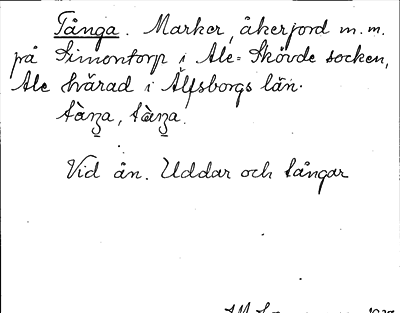 Tånga. Marker, åkerjord m.m.
på Simontorp i Ale-Skövde socken,
Ale härad i Älfsborgs län.
Vid ån. Uddar och tångar